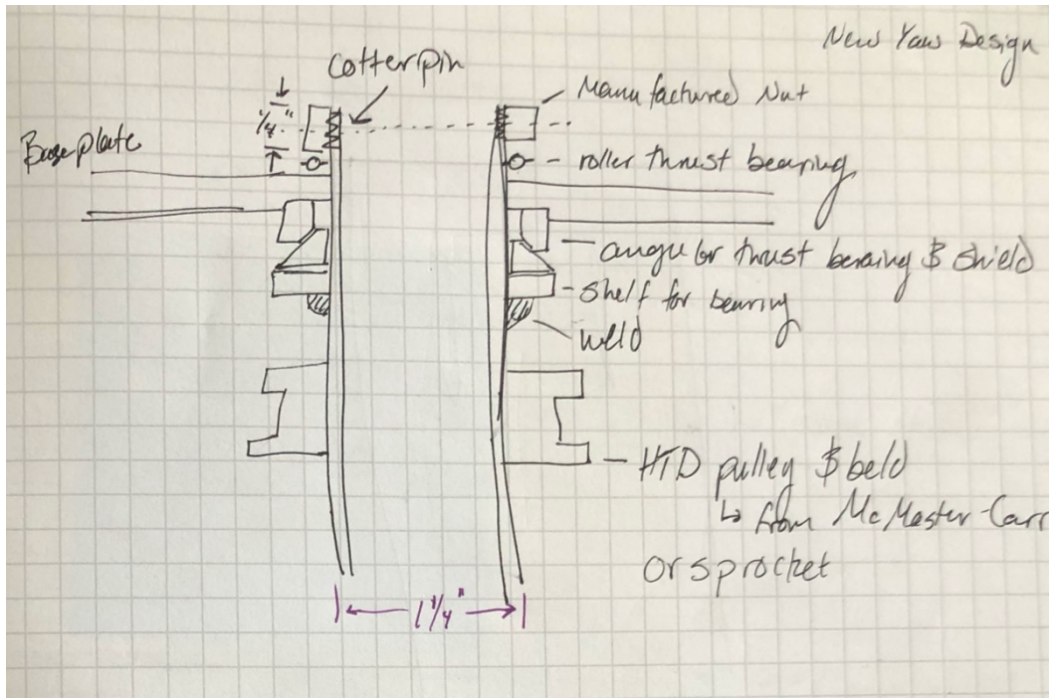 New Yaw Design
cotter pin
1/4"
Manufactured Nut
Baseplate
roller thrust bearing
angular thrust bearing & shield
shelf for bearing
weld
HTD pulley & beld
↳ from McMaster-Carr
or sprocket
1 1/4"